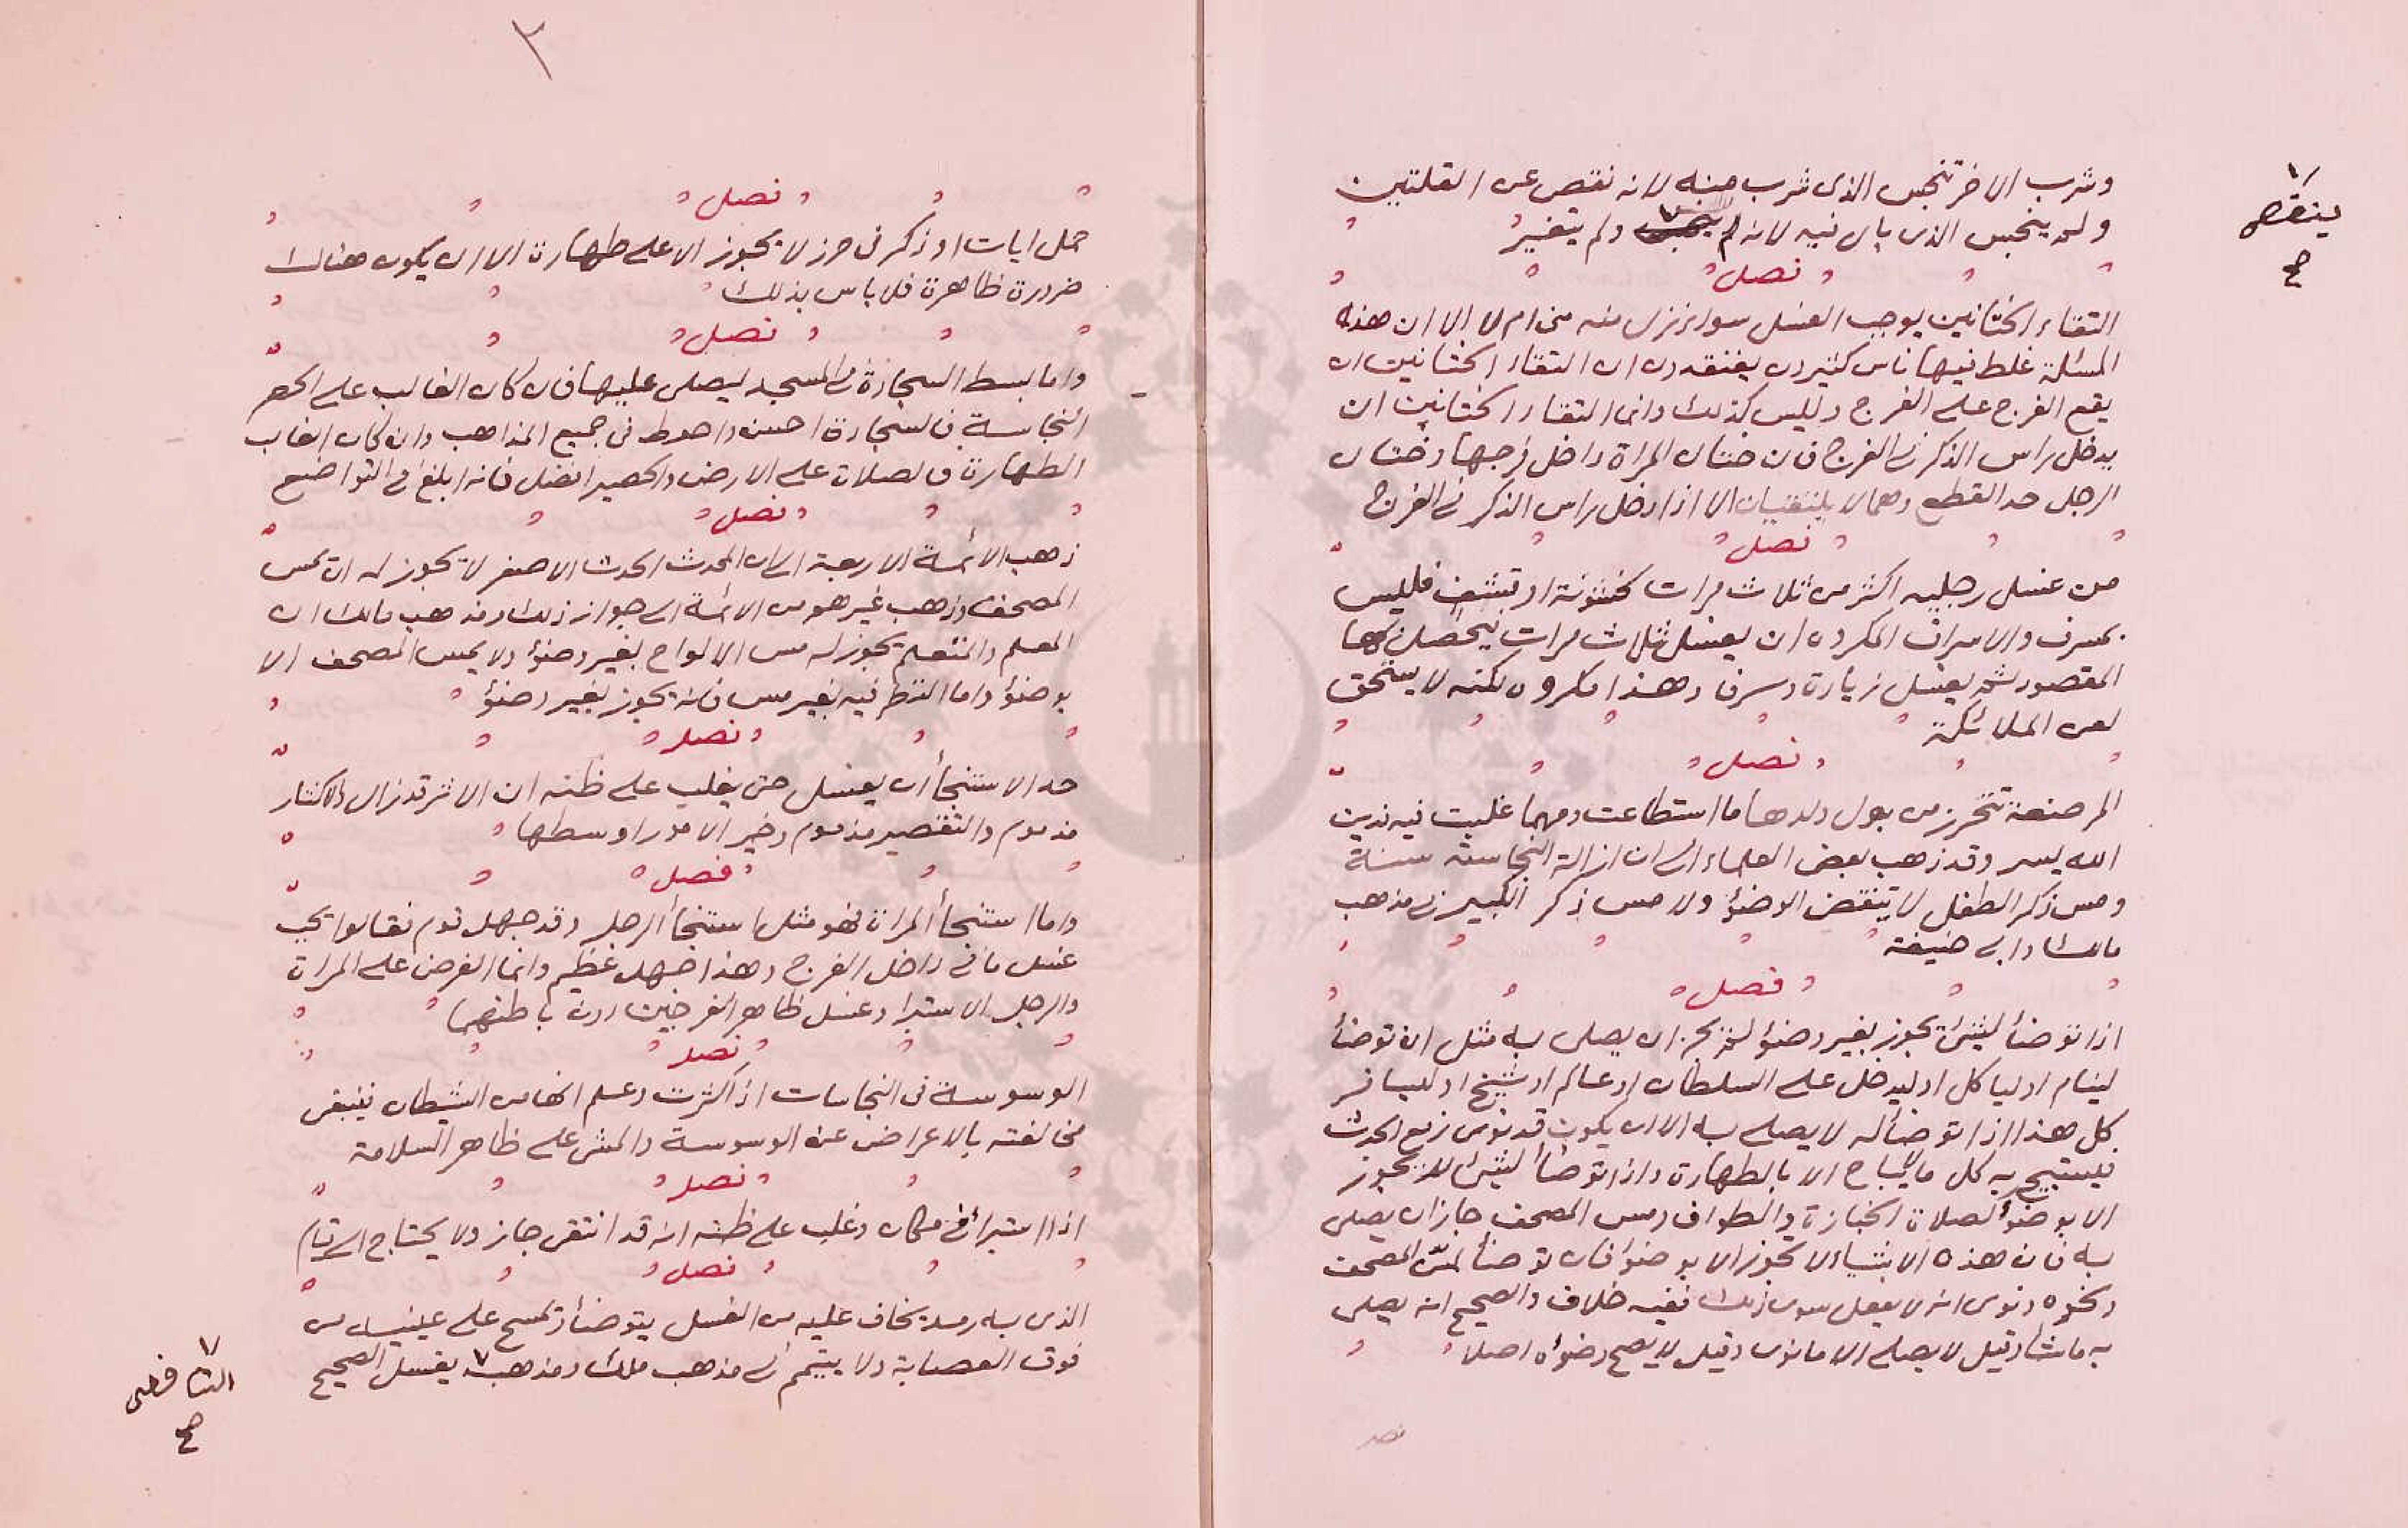 وشرب الاخر تنجس الذى شرب منه لانه نقص عن القلتين
ولم ينجس الذى بال فيه لانه لم ولم يتغير
ينقص
صح
فصل
التقاء الختانين يوجب الغسل سواء نزل منه منى ام لا الا ان هذه
المسئلة غلط فيها ناس كثيرون يعتقدون ان التقاء الختانين ان
يقع الفرج على الفرج وليس كذلك وانما التقاء الختانين ان
يدخل راس الذكر فى الفرج فان ختان المراة داخل فرجها وختان
الرجل حد القطع وهما لا يلتقيان الا اذا دخل راس الذكر فى الفرج
فصل
من غسل رجليه اكثر من ثلاث مرات لخشونة او تشقف فليس
بمسرف والاسراف المكروه ان يغسل ثلاث مرات يحصل بها
المقصود ثم يغسل زيادة وسرفا وهذا مكروه لكنه لا يستحق
لعن الملائكة
فصل
المرضعة تتحرز من بول ولدها ما استطاعت ومهما غلبت فيه فدين
الله يسر وقد ذهب بعض العلماء الى ان ازالة النجاسة سنة
ومس ذكر الطفل لا ينقض الوضؤ ولا مس ذكر الكبير فى مذهب
مالك وابى حنيفة
فصل
اذا توضأ لشئ يجوز بغير وضؤ لم يجز ان يصلى به مثل ان توضأ
لينام او لياكل او ليدخل على السلطان او عالم او شيخ او ليسافر
كل هذا اذا توضأ له لا يصلى به الا ان يكون قد نوى رفع الحدث
فيستبيح به كل ما لا يباح الا بالطهارة واذا توضأ لشئ لا يجوز
الا بوضؤ لصلاة الجنازة والطواف ومس المصحف جاز ان يصلى
به فان هذه الاشياء لا تجوز الا بوضؤ فان توضأ لمس المصحف
ونحوه ونوى انه لا يفعل سوى ذلك ففيه خلاف والصحيح انه يصلى
به ما شاء وقيل لا يصلى الا ما نوى وقيل لا يصح وضوأه اصلا
فصل
٣
فصل
حمل ايات او ذكر فى حرز لا يجوز الا على طهارة الا ان يكون هناك
ضرورة ظاهرة فلا باس بذلك
فصل
واما بسط السجادة فى المسجد ليصلى عليها فان كان الغالب على الحصر
النجاسة فالسجادة احسن واحوط فى جميع المذاهب وان كان الغالب
الطهارة فالصلاة على الارض والحصير افضل فانه ابلغ فى التواضع
فصل
ذهب الائمة الاربعة الى ان المحدث الحدث الاصغر لا يجوز له ان يمس
المصحف وذهب غيرهم من الائمة الى جواز ذلك ومذهب مالك ان
المعلم والمتعلم يجوز له مس الالواح بغير وضؤ ولا يمس المصحف الا
بوضؤ واما النظر فيه بغير مس فانه يجوز بغير وضؤ
فصل
حد الاستنجأ ان يغسل حتى يغلب على ظنه ان الاثر قد زال والاكثار
مذموم والتقصير مذموم وخير الامور اوسطها
فصل
واما استنجأ المراة فهو مثل استنجأ الرجل وقد جهل قوم فقالوا يجب
غسل ما فى داخل الفرج وهذا جهل عظيم وانما الفرض على المراة
والرجل الاستبرا وغسل ظاهر الفرجين دون باطنهما
فصل
الوسوسة فى النجاسات اذا كثرت وعلم انها من الشيطان فينبغى
مخالفته بالاعراض عن الوسوسة والمشى على ظاهر السلامة
فصل
اذا استبرأ فى مكان وغلب على ظنه انه قد انتقى جاز ولا يحتاج الى قيام
فصل
الذى به رمد يخاف عليه من الغسل يتوضأ ويمسح على عينيه من
فوق العصابة ولا يتيمم فى مذهب مالك ومذهب يغسل الصحيح
الشافعى
صح